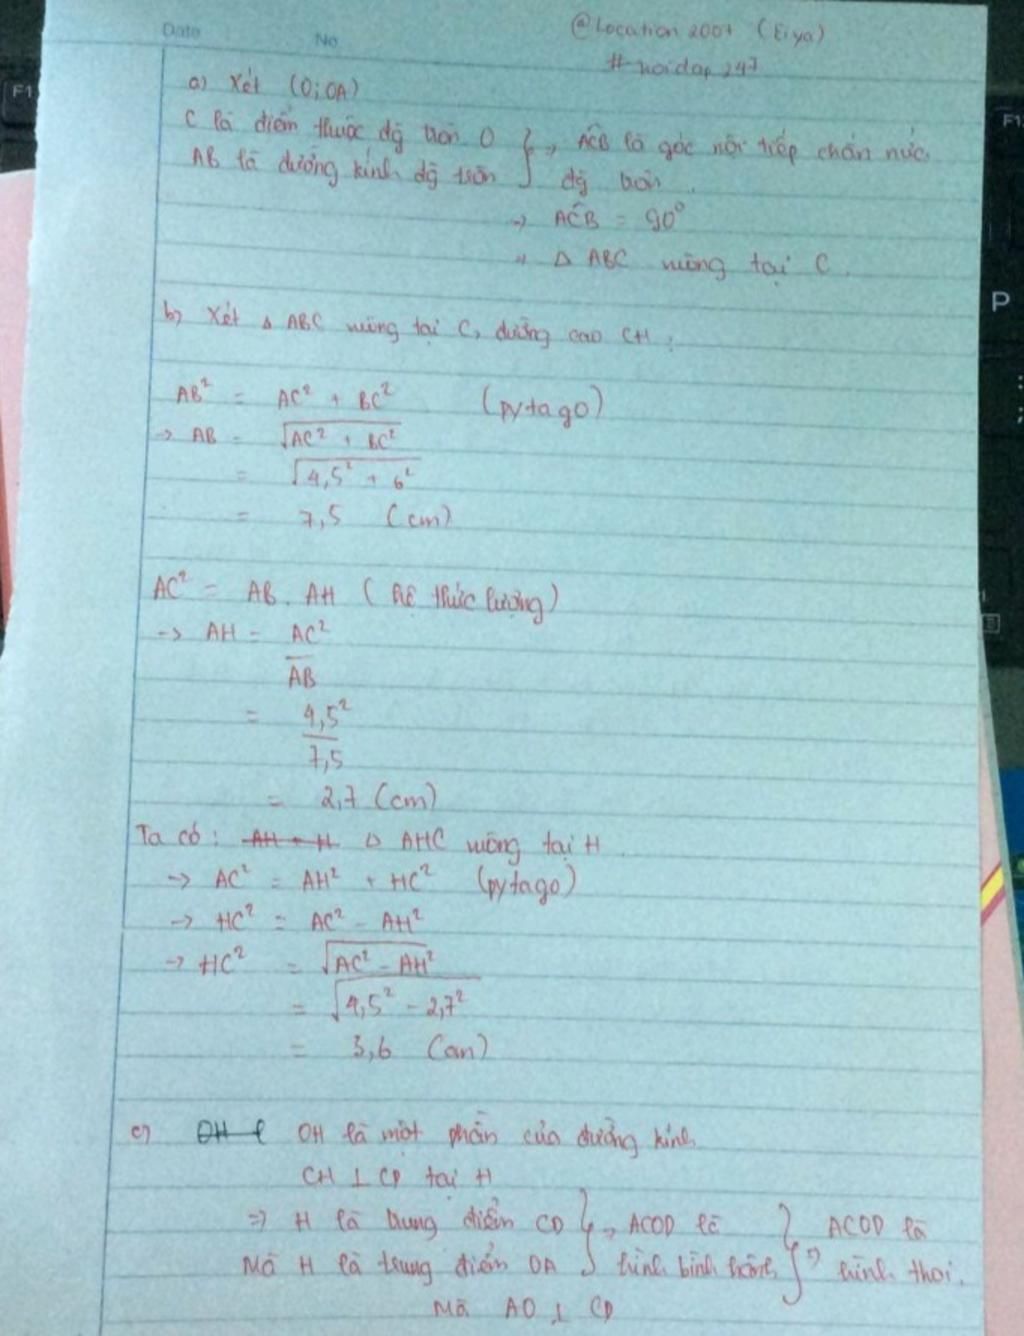 Date No
@Location 2007 (Eiya)
#hoidap 247
a) Xét (O; OA)
C là điểm thuộc đg tròn O } → AĈB là góc nội tiếp chắn nửa
AB là đường kính đg tròn đg tròn.
→ AĈB = 90°
→ Δ ABC vuông tại C.
b) Xét Δ ABC vuông tại C, đường cao CH:
AB² = AC² + BC² (pytago)
→ AB = √AC² + BC²
= √4,5² + 6²
= 7,5 (cm)
AC² = AB . AH (hệ thức lượng)
→ AH = AC²
AB
= 4,5²
7,5
= 2,7 (cm)
Ta có: Δ AHC vuông tại H
→ AC² = AH² + HC² (pytago)
→ HC² = AC² - AH²
→ HC² = √AC² - AH²
= √4,5² - 2,7²
= 3,6 (cm)
c) OH là một phần của đường kính
CH ⊥ CD tại H
⇒ H là trung điểm CD } → ACOD là } ACOD là
Mà H là trung điểm OA hình bình hành ⇒ hình thoi.
Mà AO ⊥ CD
F1
F1
P